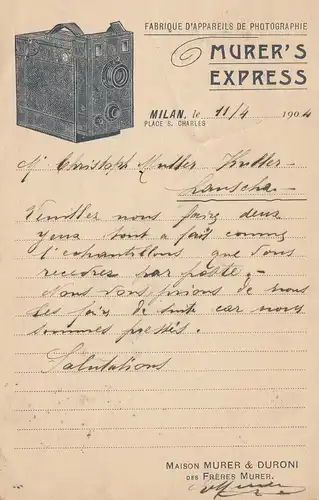 FABRIQUE D'APPAREILS DE PHOTOGRAPHIE
MURER'S
EXPRESS
MILAN, le 11/4 1904
PLACE S. CHARLES
Mr Christoph Mutter
Lauscha
Veuillez nous faire deux
yeux tout a fait comme
l'echantillons que vous
recevres par poste. -
Nous vous prions de nous
les faire de suite car nous
sommes pressés.
Salutations
MAISON MURER & DURONI
DES FRÈRES MURER.